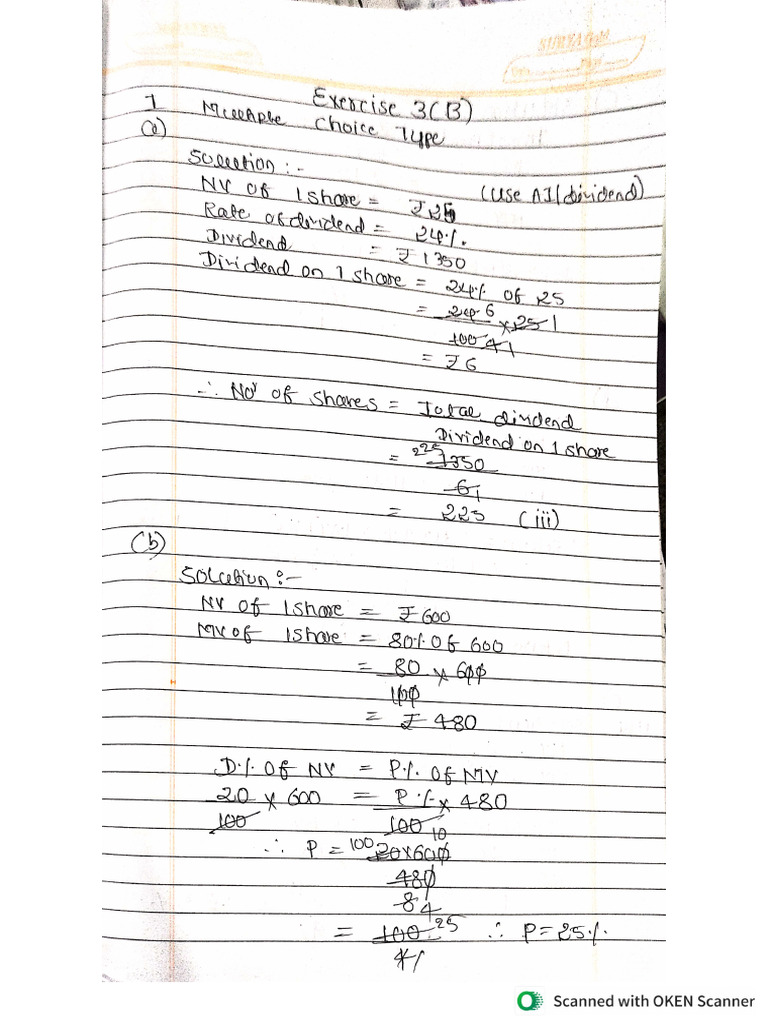 Exercise 3(B)
1 Multiple Choice Type
(a)
Solution :-
NV of 1 share = ₹ 25 (Use AI/dividend)
Rate of dividend = 24%.
Dividend = ₹ 1350
Dividend on 1 share = 24% of 25
= 24 6 × 25 1
100 4 1
= ₹ 6
∴ No of shares = Total dividend
Dividend on 1 share
= 225 1350
6 1
= 225 (iii)
(b)
Solution :-
NV of 1 share = ₹ 600
MV of 1 share = 80% of 600
= 80 × 600
100
= ₹ 480
D% of NV = P% of MV
20 × 600 = P% × 480
100 100 10
∴ P = 100 20×600
480
8 4
= 100 25 ∴ P = 25%
4 1
Scanned with OKEN Scanner